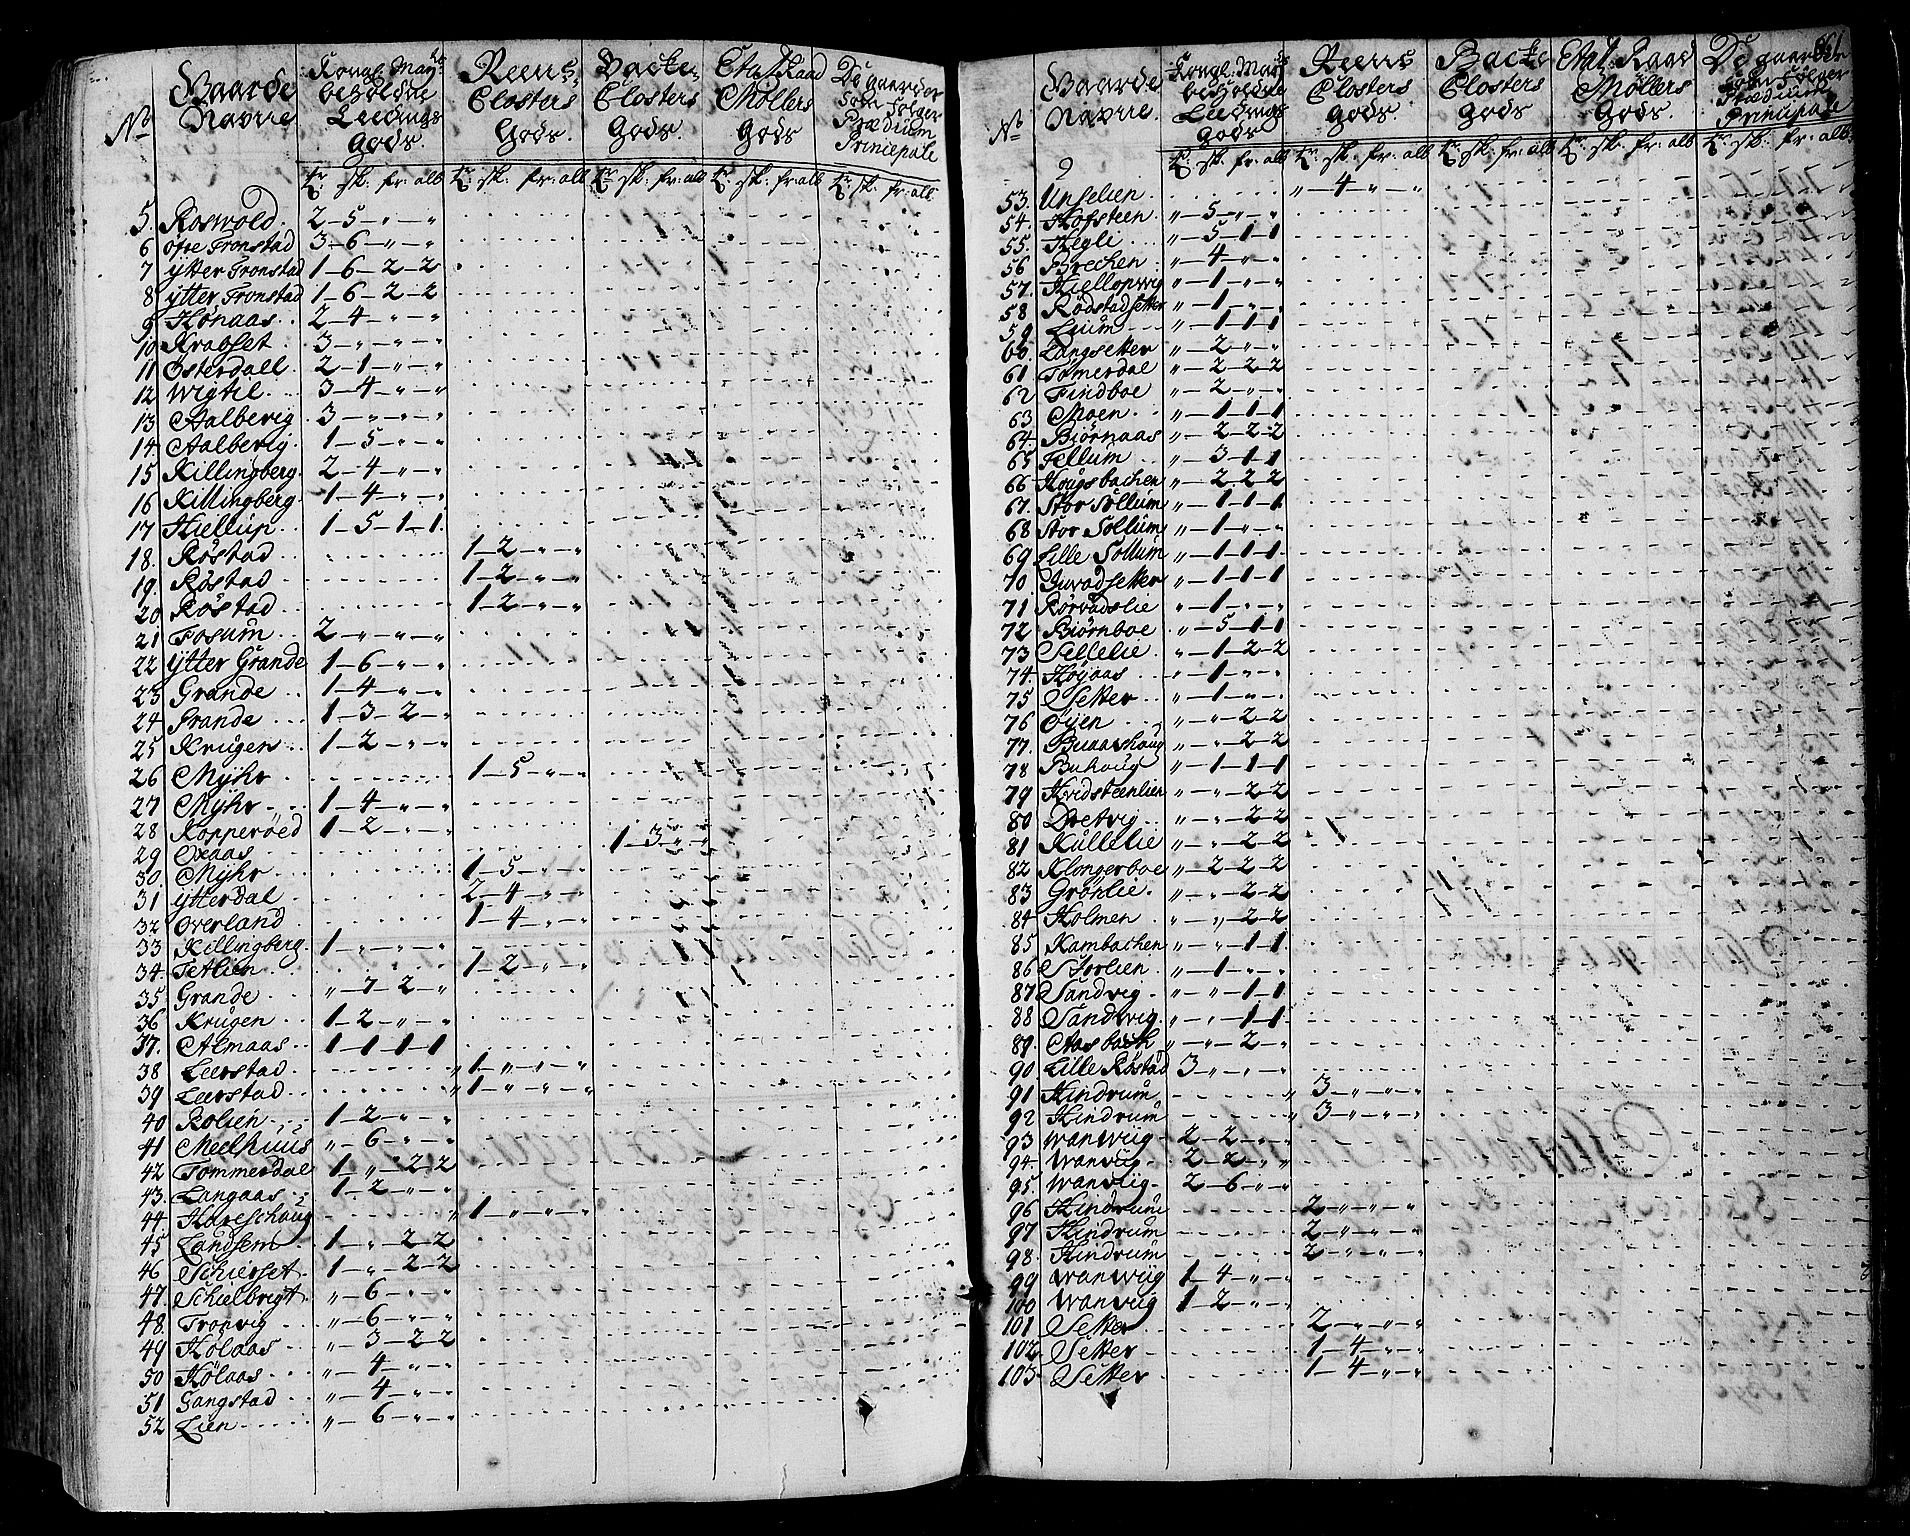 No
Gaarde Navne
Kongl. Mayts beholdne Leedings Gods.
Reens Closters Gods.
Backe Closters Gods
Etat. Raad Møllers Gods
De gaarder som følger Prædium Principale
sk: fr: alb sk: fr: alb sk: fr: alb sk: fr: alb sk: fr: alb
5. Roswold. 2 - 5 - „ - „
6 öfre Tronstad 3 - 6 - „ - „
7 ytter Tronstad 1 - 6 - 2 - 2
8 ytter Tronstad 1 - 6 - 2 - 2
9 Hønaas 2 - 4 - „ - „
10 Krabset 3 - „ - „ - „
11 Österdall 2 - 1 - „ - „
12 Wigtil 3 - 4 - „ - „
13 Aalberig 3 - „ - „ - „
14 Aalberig 1 - 5 - „ - „
15 Killingberg 2 - 4 - „ - „
16 Killingberg 1 - 4 - „ - „
17 Hiellup 1 - 5 - 1 - 1
18. Röstad 1 - 2 - „ - „
19. Röstad 1 - 2 - „ - „
20 Röstad 1 - 2 - „ - „
21 Fosum 2 - „ - „ - „
22 ytter Grande 1 - 6 - „ - „
23 Grande 1 - 4 - „ - „
24 Grande 1 - 3 - 2 - „
25 Krugen 1 - 2 - „ - „
26 Myhr 1 - 5 - „ - „
27 Myhr 1 - 4 - „ - „
28 Kopperöed 1 - 2 - „ - „
29 Oxaas 1 - 3 - „ - „
30 Myhr 1 - 5 - „ - „
31 ytterdal 2 - 4 - „ - „
32 Overland 1 - 4 - „ - „
33 Killingberg 1 - „ - „ - „
34 Tetlien 1 - 2 - „ - „
35 Grande „ - 7 - 2 - „
36 Krugen 1 - 2 - „ - „
37. Almaas 1 - 1 - 1 - 1
38 Leerstad „ 1 - „ - „ - „
39 Leerstad „ 1 - „ - „ - „
40 Rolien 1 - 2 - „ - „
41 Meelhuus „ - 6 - „ - „
42 Tommerdal 1 - „ - 2 - 2
43. Langaas 1 - 2 - „ - „
44 Hareschoug „ 1 - „ - „ - „
45 Landsem 1 - „ - 2 - 2
46 Schierset 1 - „ - 2 - 2
47. Schielbrigt „ - 6 - „ - „
48. Tronvig „ - 6 - „ - „
49 Hölaas „ - 3 - 2 - 2
50 Hölaas „ - 4 - „ - „
51 Gangstad „ - 4 - „ - „
52 Lien „ - 6 - „ - „
No
Gaarde Navne.
Kongl. Mayts beholdne Leedings Gods
Reens Closters Gods.
Backe Closters Gods
Etat. Raad Møllers Gods.
De gaarder som følger Prædium Principale
sk. fr: alb sk: fr: alb sk: fr: alb sk: fr: alb sk: fr: alb.
53. Unselien „ - 4 - „ - „
54. Hofsteen „ - 5 - „ - „
55. Hegle „ - 5 - 1 - 1
56 Brechen „ - 4 - „ - „
57. Kiellopwig „ - 1 - „ - „
58 Rödstadsetter „ - 1 - „ - „
59 Lium „ - 1 - 1 - 1
60 Langsetter „ - 2 - „ - „
61 Tömerdal „ - 2 - 2 - 2
62 Findboe „ - 2 - „ - „
63. Moen „ - 1 - 1 - 1
64. Biörnaas „ - 2 - 2 - 2
65 Fellum „ - 3 - 1 - 1
66 Hougsbachen „ - 2 - 2 - 2
67. Stor Sollum „ - 1 - 1 - 1
68 Stor Sollum „ - 1 - „ - „
69 Lille Sollum „ - 1 - 1 - 1
70 „ - 1 - 1 - 1
71 Rörvadslie „ - 1 - „ - „
72 Biörnboe „ - 5 - 1 - 1
73 Sellelie „ - 1 - 2 - 2
74. Höyaas „ - 1 - „ - „
75 Setter „ - 1 - „ - „
76 Oyen „ - „ - 2 - 2
77. Buaashaug „ - „ - 2 - 2
78 Buhoug „ - 1 - 1 - 1
79 Hvidsteenlien „ - „ - 2 - 2
80 Dretvig „ - „ - 2 - 2
81 Kullelie „ - „ - 2 - 2
82 Klongerboe „ - 2 - 2 - 2
83 Grönlie „ - „ - 2 - 2
84 Holmen „ - „ - 2 - 2
85 Kambachen „ - „ - 1 - 1
86 Storlien „ - 1 - „ - „
87 Sandvig „ - „ - 1 - 1
88 Sandwig „ - „ - 1 - 1
89. Aasbach „ - „ - 2 - „
90 Lille Röstad 3 - „ - „ - „
91 Hindrum „ 3 - „ - „ - „
92 Hindrum „ 3 - „ - „ - „
93 Wanwiig 2 - 2 - „ - „
94. Wanviig 2 - 2 - „ - „
95. Wanviig 2 - 6 - „ - „
96 Hindrum 2 - „ - „ - „
97 Hindrum 2 - „ - „ - „
98. Hindrum 2 - „ - „ - „
99 Wanwiig 1 - 4 - „ - „
100 Wanviig 1 - 2 - „ - „
101 Setter 2 - „ - „ - „
102 Setter 1 - 4 - „ - „
103 Setter 1 - 4 - „ - „